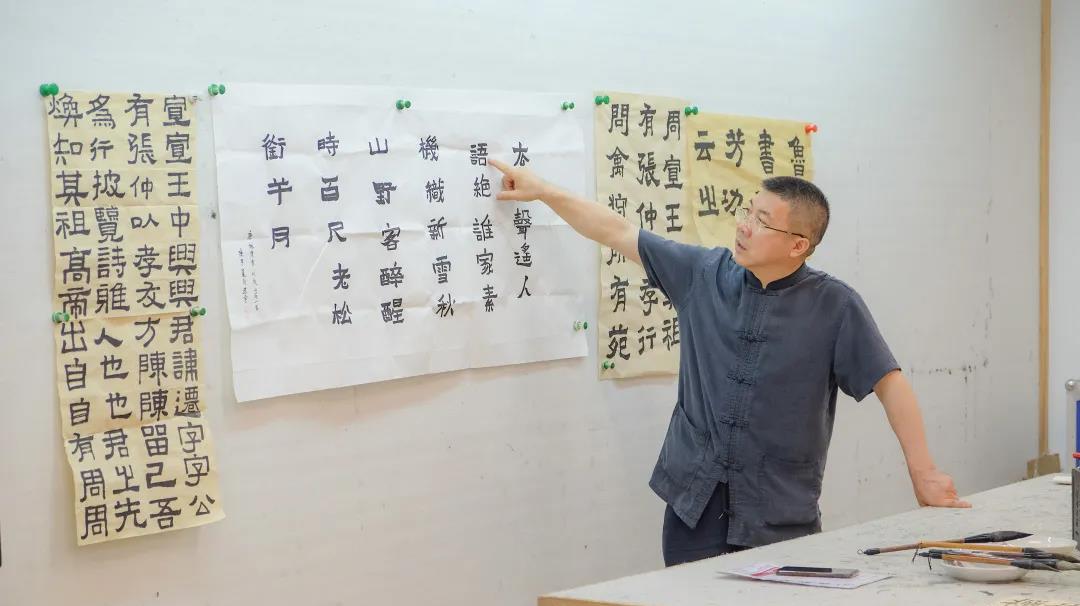 宣宣王中興興君諱遷字字公
有張仲以孝友方陳陳留己吾
爲行披覽詩雅人也也君之先
煥知其祖高帝出自自有周周
去聲遙人
語絕誰家素
機織新雪秋
山野客醉醒
時百尺老松
銜半月
周宣王祖
有張仲孝行
問禽狩所有苑
魯
書
芳功
云